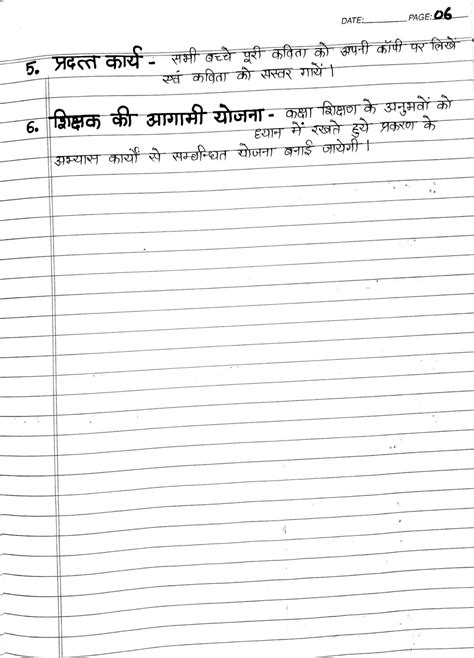 DATE:________ PAGE: 06
5. प्रदत्त कार्य - सभी बच्चे पूरी कविता को अपनी कॉपी पर लिखें
एवं कविता को सस्वर गायें।
6. शिक्षक की आगामी योजना - कक्षा शिक्षण के अनुभवों को
ध्यान में रखते हुये प्रकरण के
अभ्यास कार्यों से सम्बन्धित योजना बनाई जायेगी।